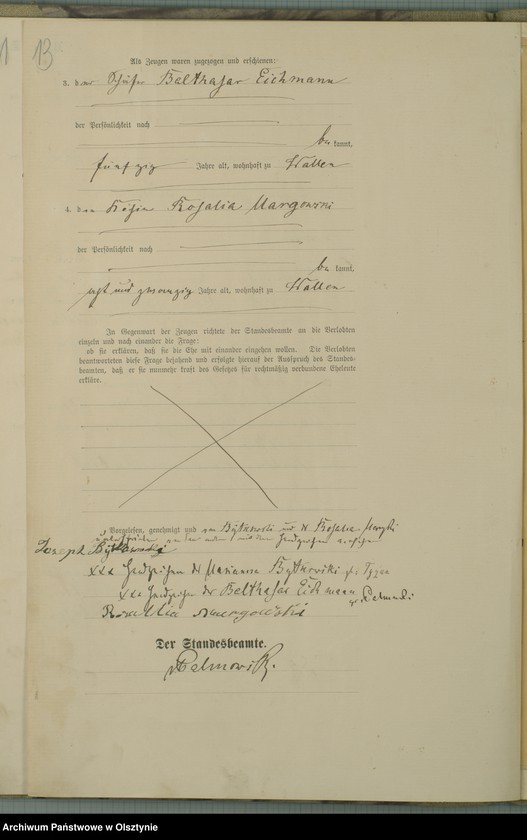 13
Als Zeugen waren zugezogen und erschienen:
3. der Schäfer Balthasar Eichmann
der Persönlichkeit nach
be kannt,
fünfzig Jahre alt, wohnhaft zu Wallen
4. der Rosalia Margowski
der Persönlichkeit nach
be kannt,
acht und zwanzig Jahre alt, wohnhaft zu Wallen
In Gegenwart der Zeugen richtete der Standesbeamte an die Verlobten
einzeln und nach einander die Frage:
ob sie erklären, daß sie die Ehe mit einander eingehen wollen. Die Verlobten
beantworteten diese Frage bejahend und erfolgte hierauf der Ausspruch des Standes-
beamten, daß er sie nunmehr kraft des Gesetzes für rechtmäßig verbundene Eheleute
erkläre.
Vorgelesen, genehmigt und von Bytkowski und der Rosalia
Joseph Bytkowski
xxx Handzeichen der Marianna Bytkowski geb
xxx Handzeichen des Balthasar Eichmann
Der Standesbeamte.